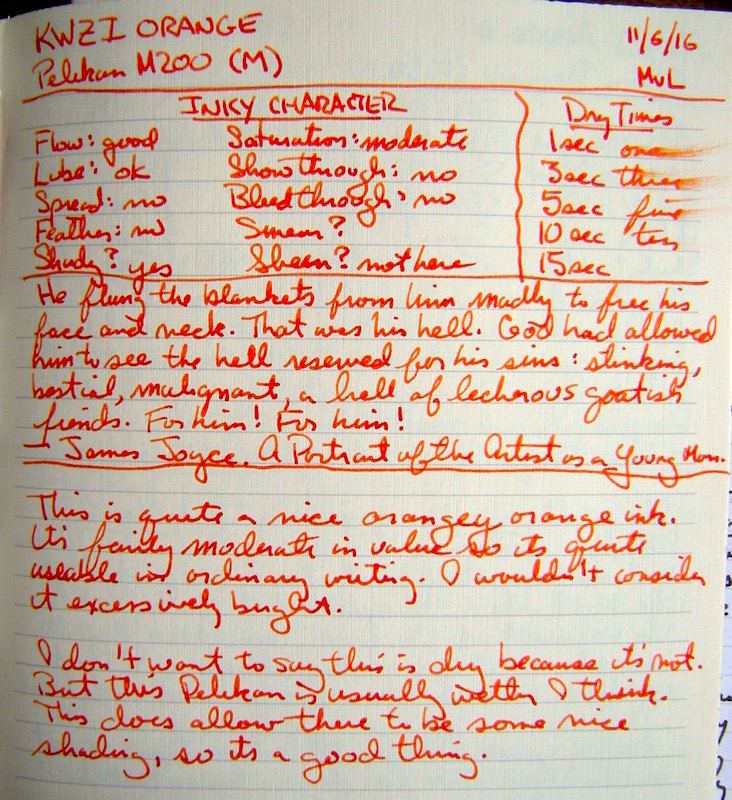 KWZI ORANGE
11/6/16
Pelikan M200 (M)
MvL
INKY CHARACTER
Dry Times
Flow: good Saturation: moderate
1sec one
Lube: ok Show through: no
3sec three
Spread: no Bleed through: no
5sec five
Feather: no Smear?
10 sec ten
Shady? yes Sheen? not here
15sec
He flung the blankets from him madly to free his
face and neck. That was his hell. God had allowed
him to see the hell reserved for his sins: stinking,
bestial, malignant, a hell of lecherous goatish
fiends. For him! For him!
— James Joyce. A Portrait of the Artist as a Young Man.
This is quite a nice orangey orange ink.
It's fairly moderate in value so its quite
useable in ordinary writing. I wouldn't consider
it excessively bright.
I don't want to say this is dry because it's not.
But this Pelikan is usually wetter I think.
This does allow there to be some nice
shading, so its a good thing.